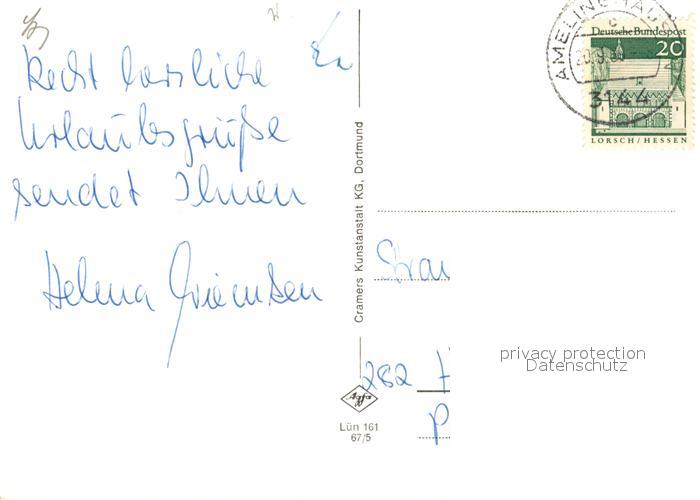 Recht herzliche
Urlaubsgrüße
sendet Ihnen
Helma Griemsen
Cramers Kunstanstalt KG, Dortmund
Agfa
Lün 161
67/5
AMELINGHAUSEN
3144
Deutsche Bundespost
20
LORSCH/HESSEN
Frau
282
privacy protection
Datenschutz